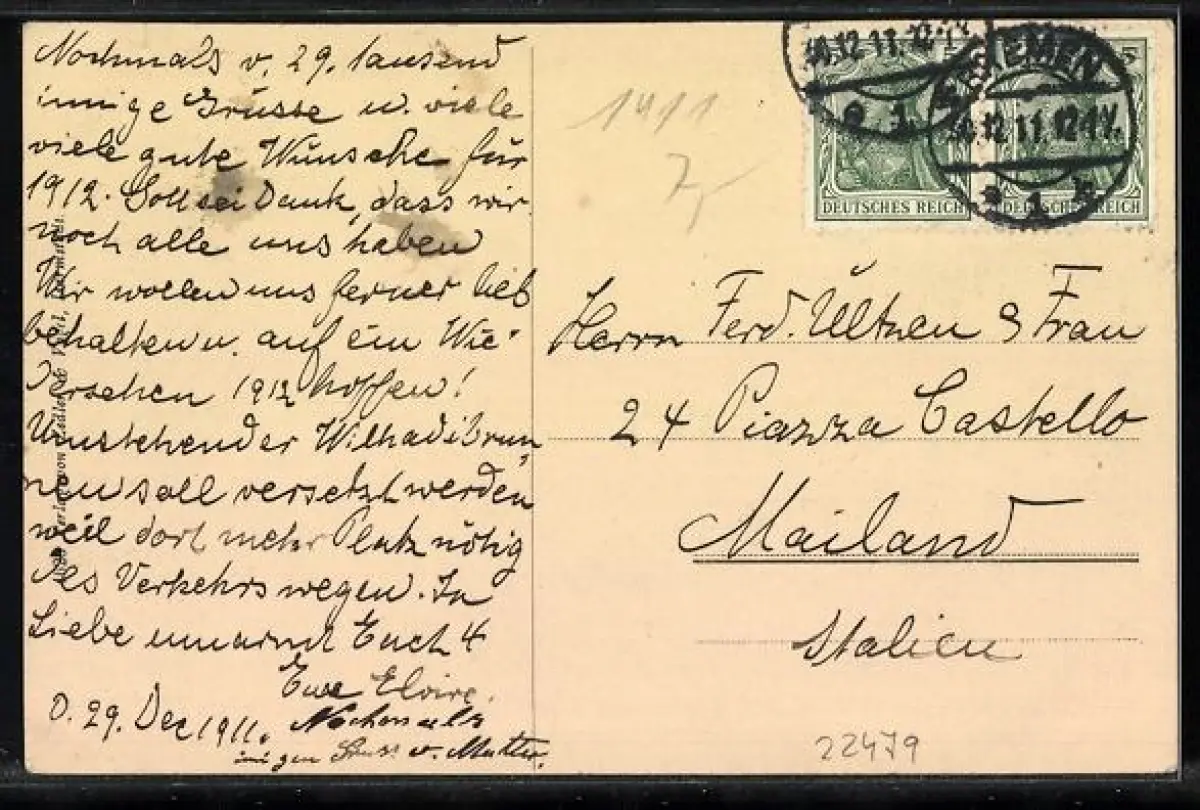 Nochmals v. 29. tausend
innige Grüsse u. viele
viele gute Wünsche für
1912. Gott sei Dank, dass wir
noch alle uns haben
Wir wollen uns ferner lieb
behalten u. auf ein Wie-
dersehen 1912 hoffen!
Umstehender Wilhadibrun
nen soll versetzt werden
weil dort mehr Platz nötig
des Verkehrs wegen. In
Liebe umarmt Euch 4
Eure Elvire.
D. 29. Dec 1911. Nochmals
innigen Gruss v. Mutter.
1911
BREMEN
12.11.12-1V.
1
DEUTSCHES REICH
DEUTSCHES REICH
5
Herrn Ferd. Ültzen & Frau
24 Piazza Castello
Mailand
Italien
22479